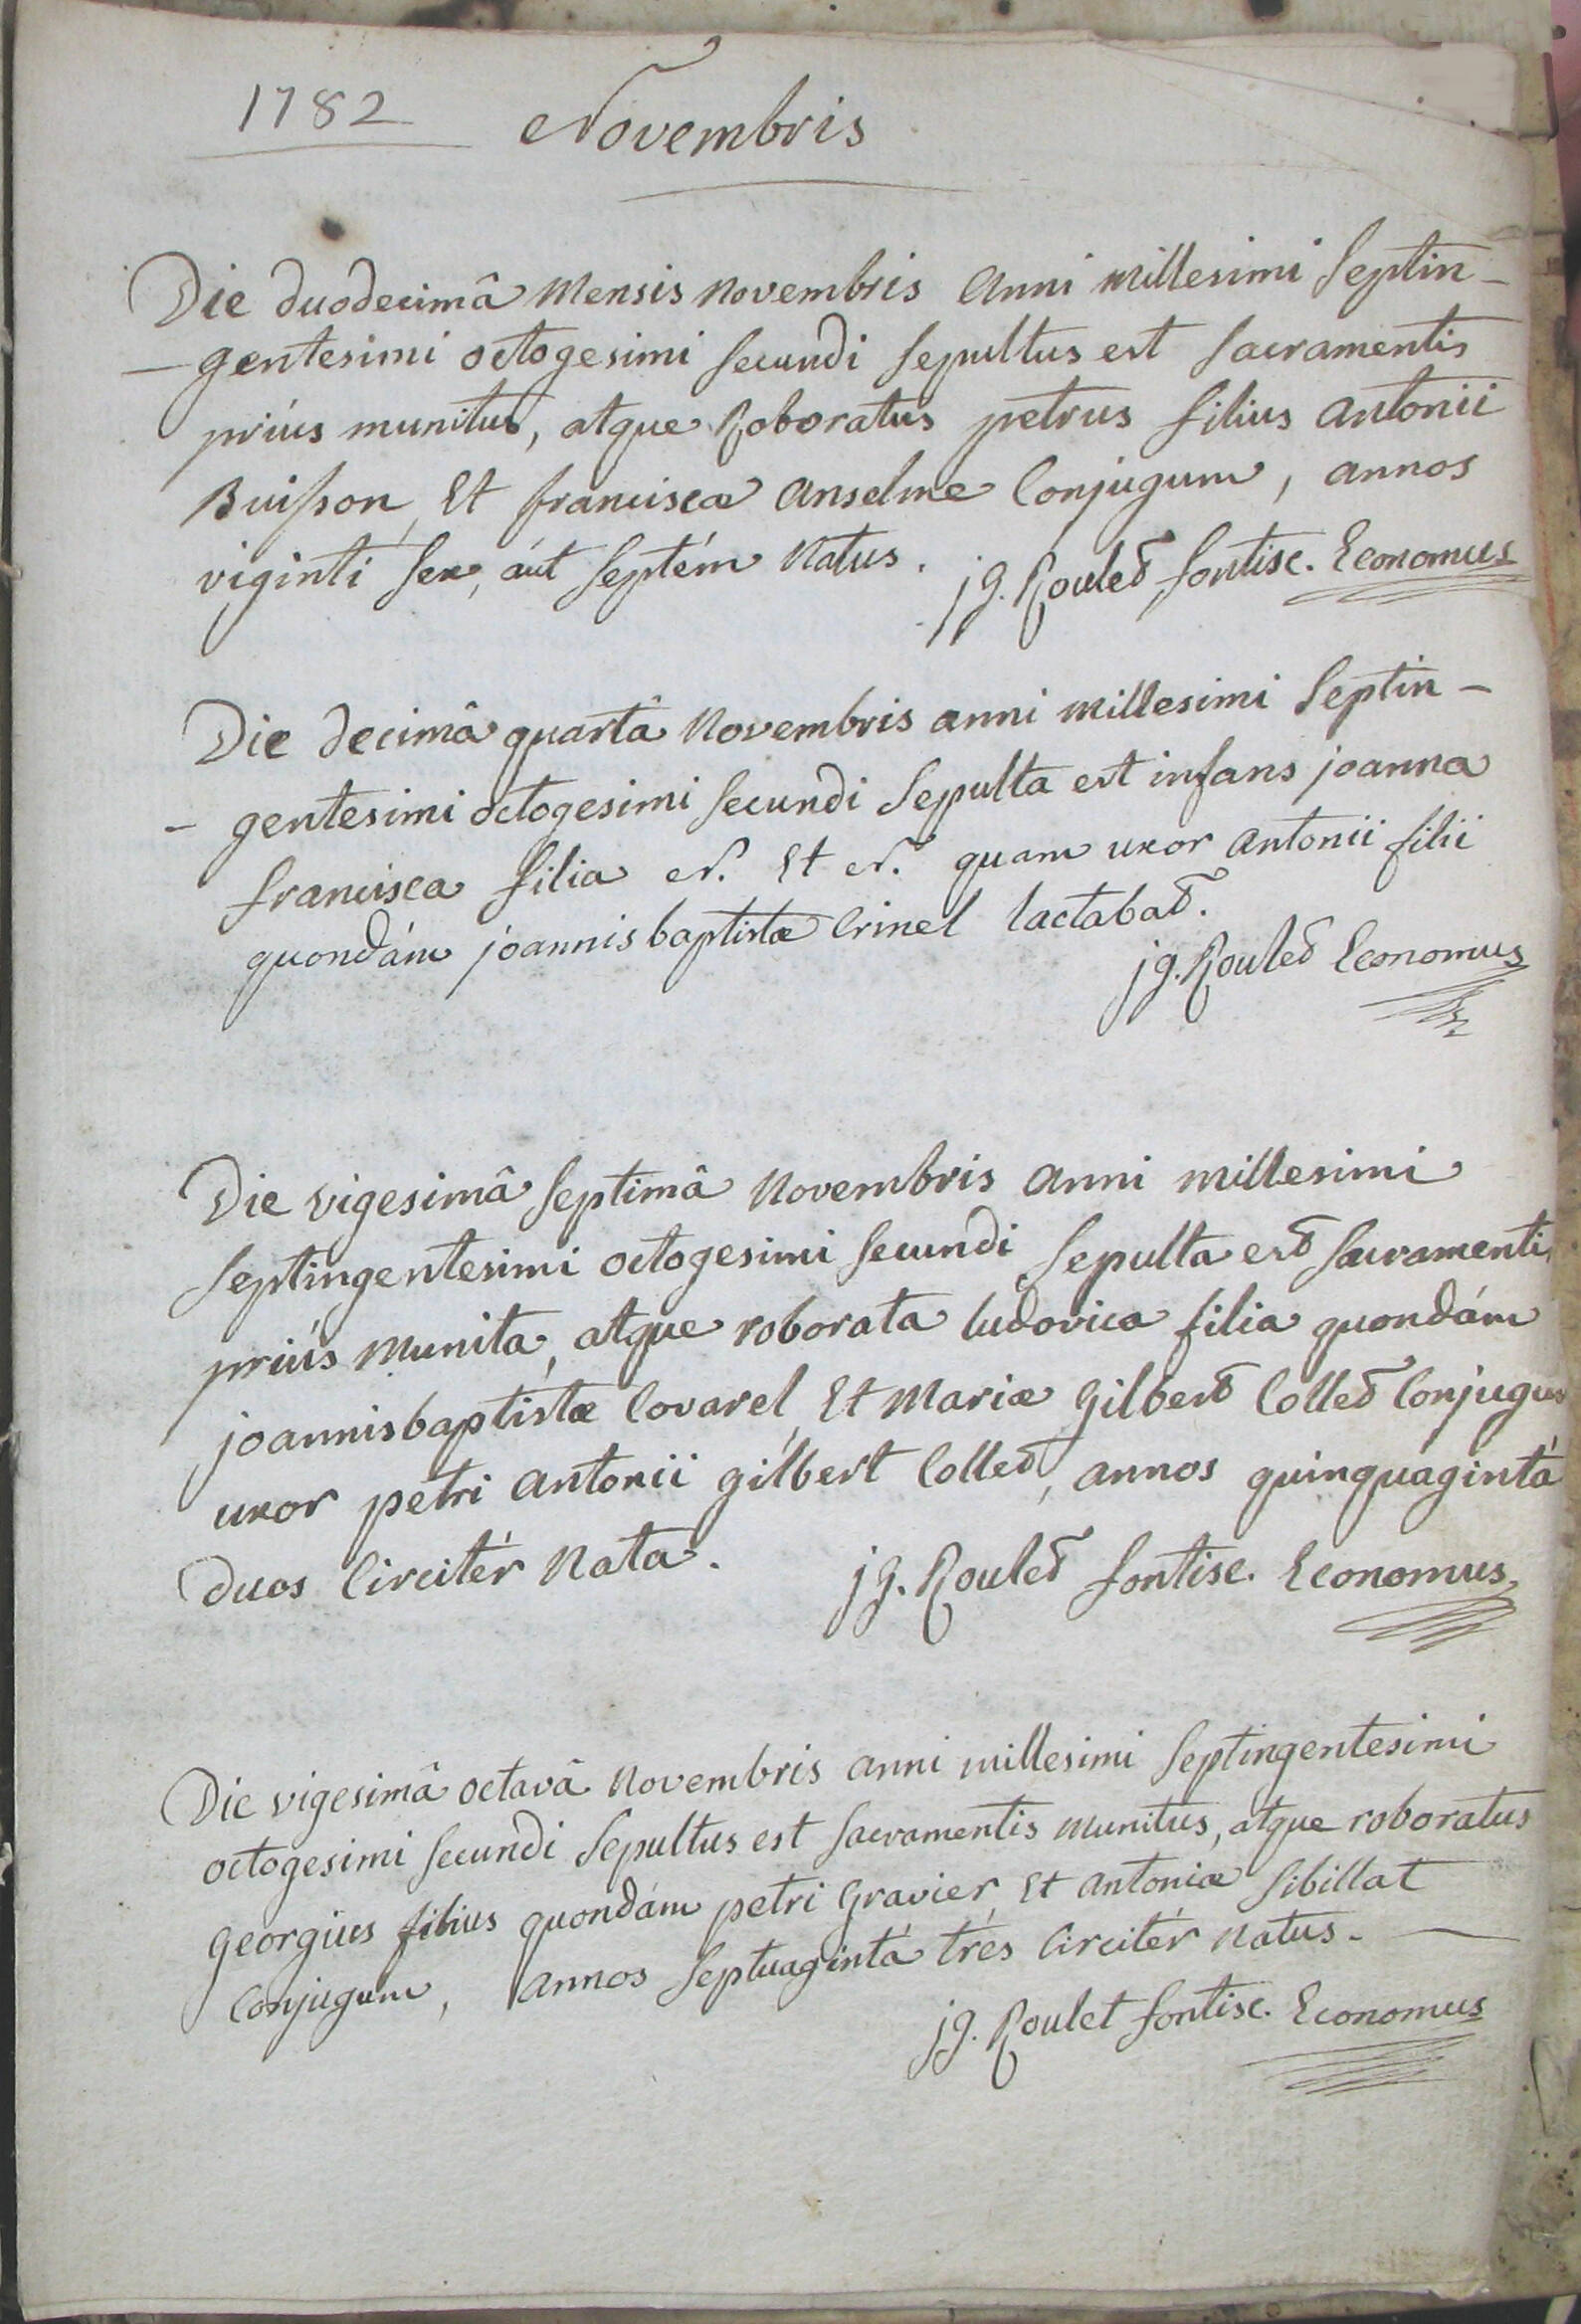 1782 Novembris
Die duodecimâ Mensis Novembris Anni Millesimi Septin-
-gentesimi octogesimi secundi sepultus est sacramentis
priús munitus, atque Roboratus petrus filius Antonii
Buisson, Et franciscæ Anselme Conjugum, annos
viginti sex, áut septém Natus. jg. Roulet fontisc. Economus
Die decimâ quartâ Novembris anni millesimi Septin-
- gentesimi octogesimi secundi Sepulta est infans joanna
francisca filia N. Et N. quam uxor Antonii filii
quondám joannis baptistæ Crinel lactabat.
jg. Roulet Economus
Die vigesimâ septimâ Novembris Anni millesimi
septingentesimi octogesimi secundi sepulta est sacramentis
priús Munita, atque roborata ludovica filia quondám
joannisbaptistæ Covarel, Et Mariæ Gilbert Collet Conjugum
uxor petri Antonii gilbert Collet, annos quinquagintá
duos Circitér Nata. jg. Roulet fontisc. Economus
Die vigesimâ octavâ Novembris anni millesimi septingentesimi
octogesimi secundi sepultus est sacramentis Munitus, atque roboratus
georgius filius quondám petri Gravier, Et Antoniæ Sibillat
Conjugum, Annos septuagintá trés Circitér Natus.
jg. Roulet fontisc. Economus